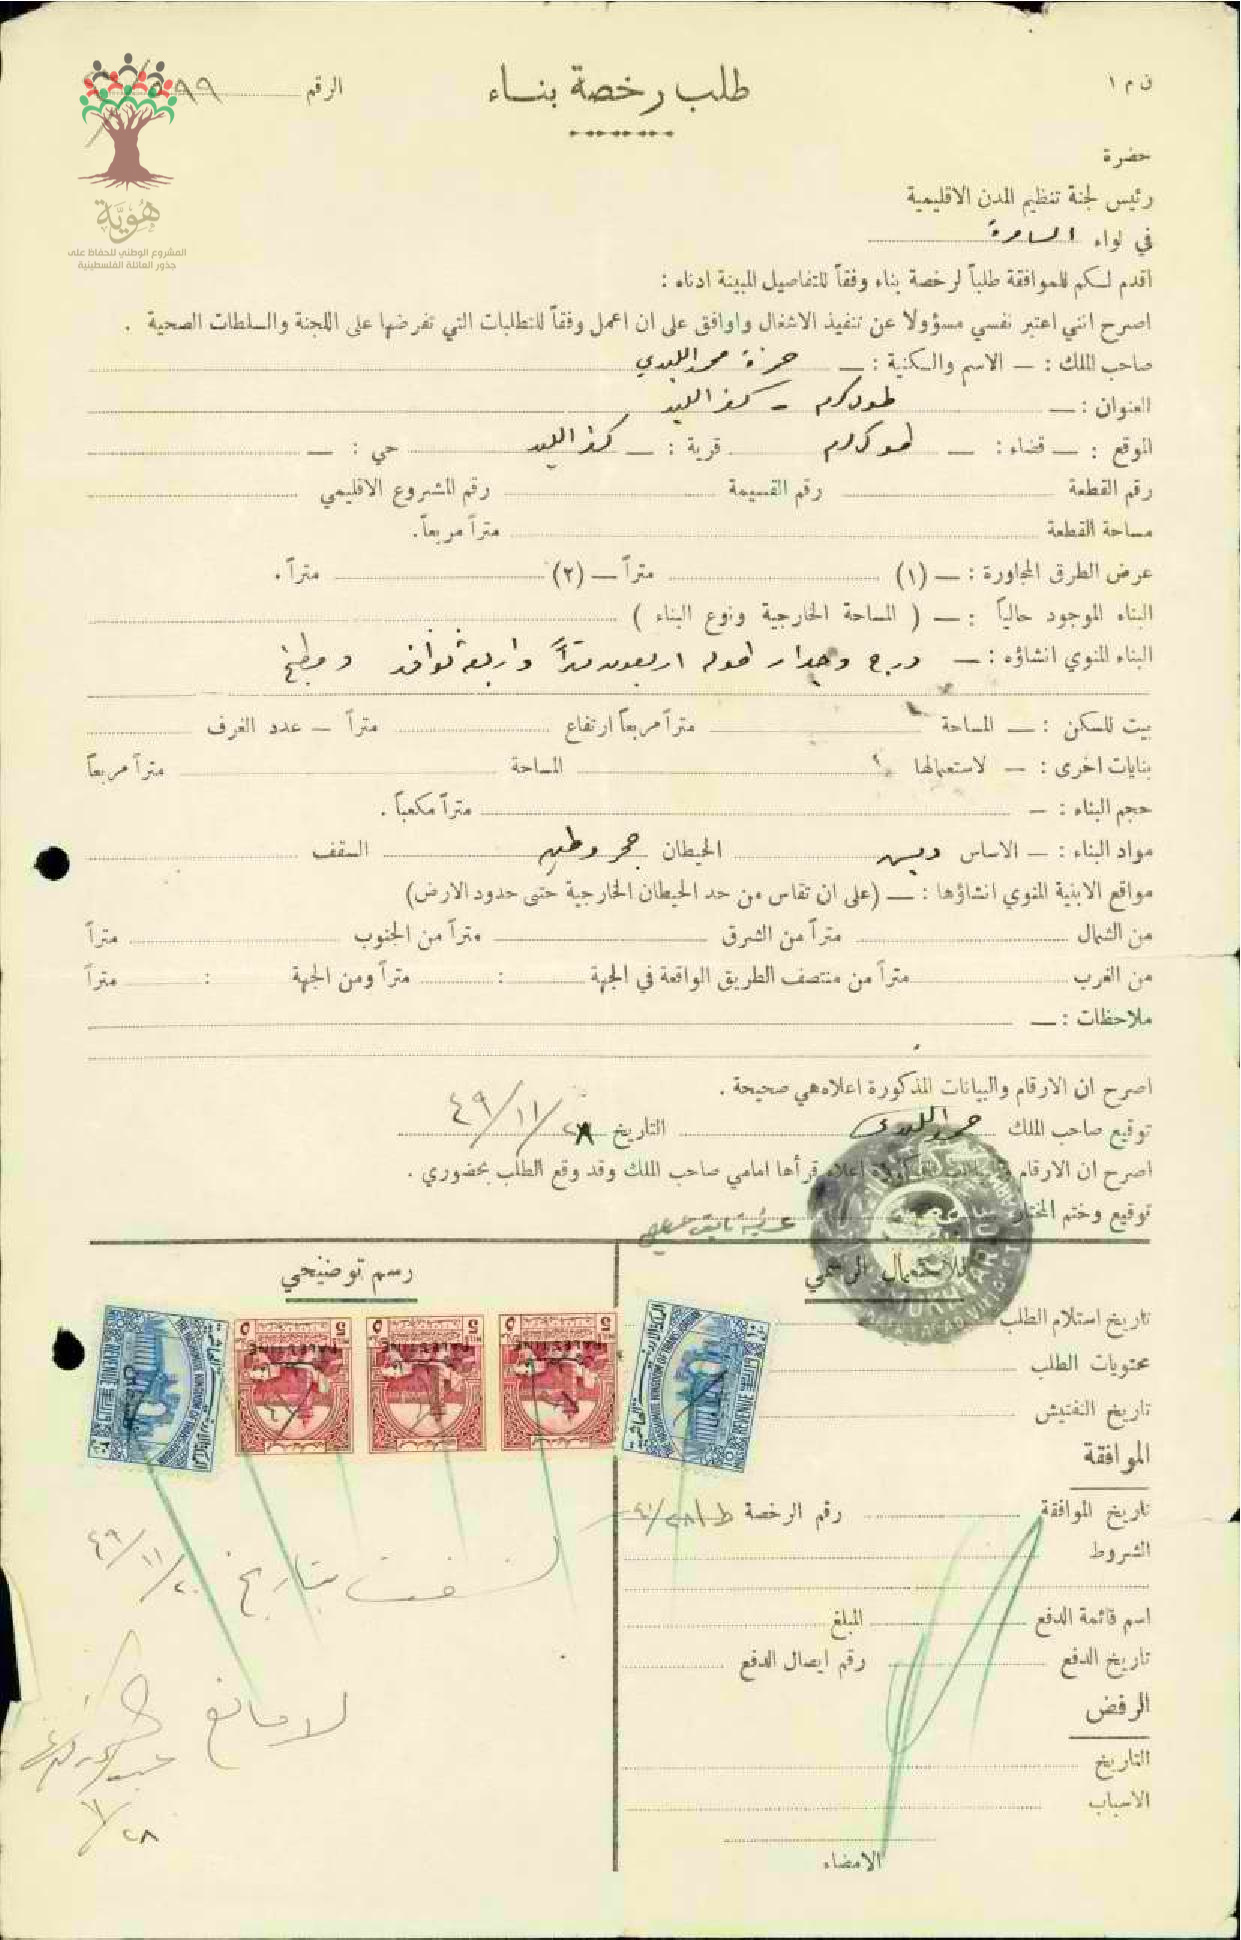 ن م ١
طلب رخصة بناء
الرقم ٩٩
هُوِيَّة
المشروع الوطني للحفاظ على
جذور العائلة الفلسطينية
حضرة
رئيس لجنة تنظيم المدن الاقليمية
في لواء السامرة
اقدم لكم للموافقة طلباً لرخصة بناء وفقاً للتفاصيل المبينة ادناه :
اصرح انني اعتبر نفسي مسؤولا عن تنفيذ الاشغال واوافق على ان اعمل وفقاً للمتطلبات التي تفرضها على اللجنة والسلطات الصحية .
صاحب الملك : — الاسم والكنية : — حمزة محمد اللبدي
العنوان : — طولكرم - كفر اللبد
الموقع : — قضاء : — طولكرم قرية : — كفر اللبد حي : —
رقم القطعة رقم القسيمة رقم المشروع الاقليمي
مساحة القطعة متراً مربعاً .
عرض الطرق المجاورة : — (١) متراً — (٢) متراً .
البناء الموجود حالياً : — ( المساحة الخارجية ونوع البناء )
البناء المنوي انشاؤه : — درج وجدار طوله اربعون متراً واربعة نوافذ ومطبخ
بيت للسكن : — المساحة متراً مربعاً ارتفاع متراً — عدد الغرف
بنايات اخرى : — لاستعمالها المساحة متراً مربعاً
حجم البناء : — متراً مكعباً .
مواد البناء : — الاساس دبس الحيطان حجر وطين السقف
مواقع الابنية المنوي انشاؤها : — (على ان تقاس من حد الحيطان الخارجية حتى حدود الارض)
من الشمال متراً من الشرق متراً من الجنوب متراً
من الغرب متراً من منتصف الطريق الواقعة في الجهة : متراً ومن الجهة : متراً
ملاحظات : —
اصرح ان الارقام والبيانات المذكورة اعلاه هي صحيحة .
توقيع صاحب الملك حمزة اللبدي التاريخ ٢٨/١١/٤٩
اصرح ان الارقام اعلاه قرأها امامي صاحب الملك وقد وقع الطلب بحضوري .
توقيع وختم المختار
MUKHTAR
للاستعمال الرسمي
رسم توضيحي
PALESTINE
PALESTINE
PALESTINE
REVENUE
REVENUE
تاريخ استلام الطلب
محتويات الطلب
تاريخ التفتيش
الموافقة
تاريخ الموافقة رقم الرخصة
الشروط
اسم قائمة الدفع المبلغ
تاريخ الدفع رقم ايصال الدفع
الرفض
التاريخ
الاسباب
الامضاء
بتاريخ
لا مانع
٢٨/١١